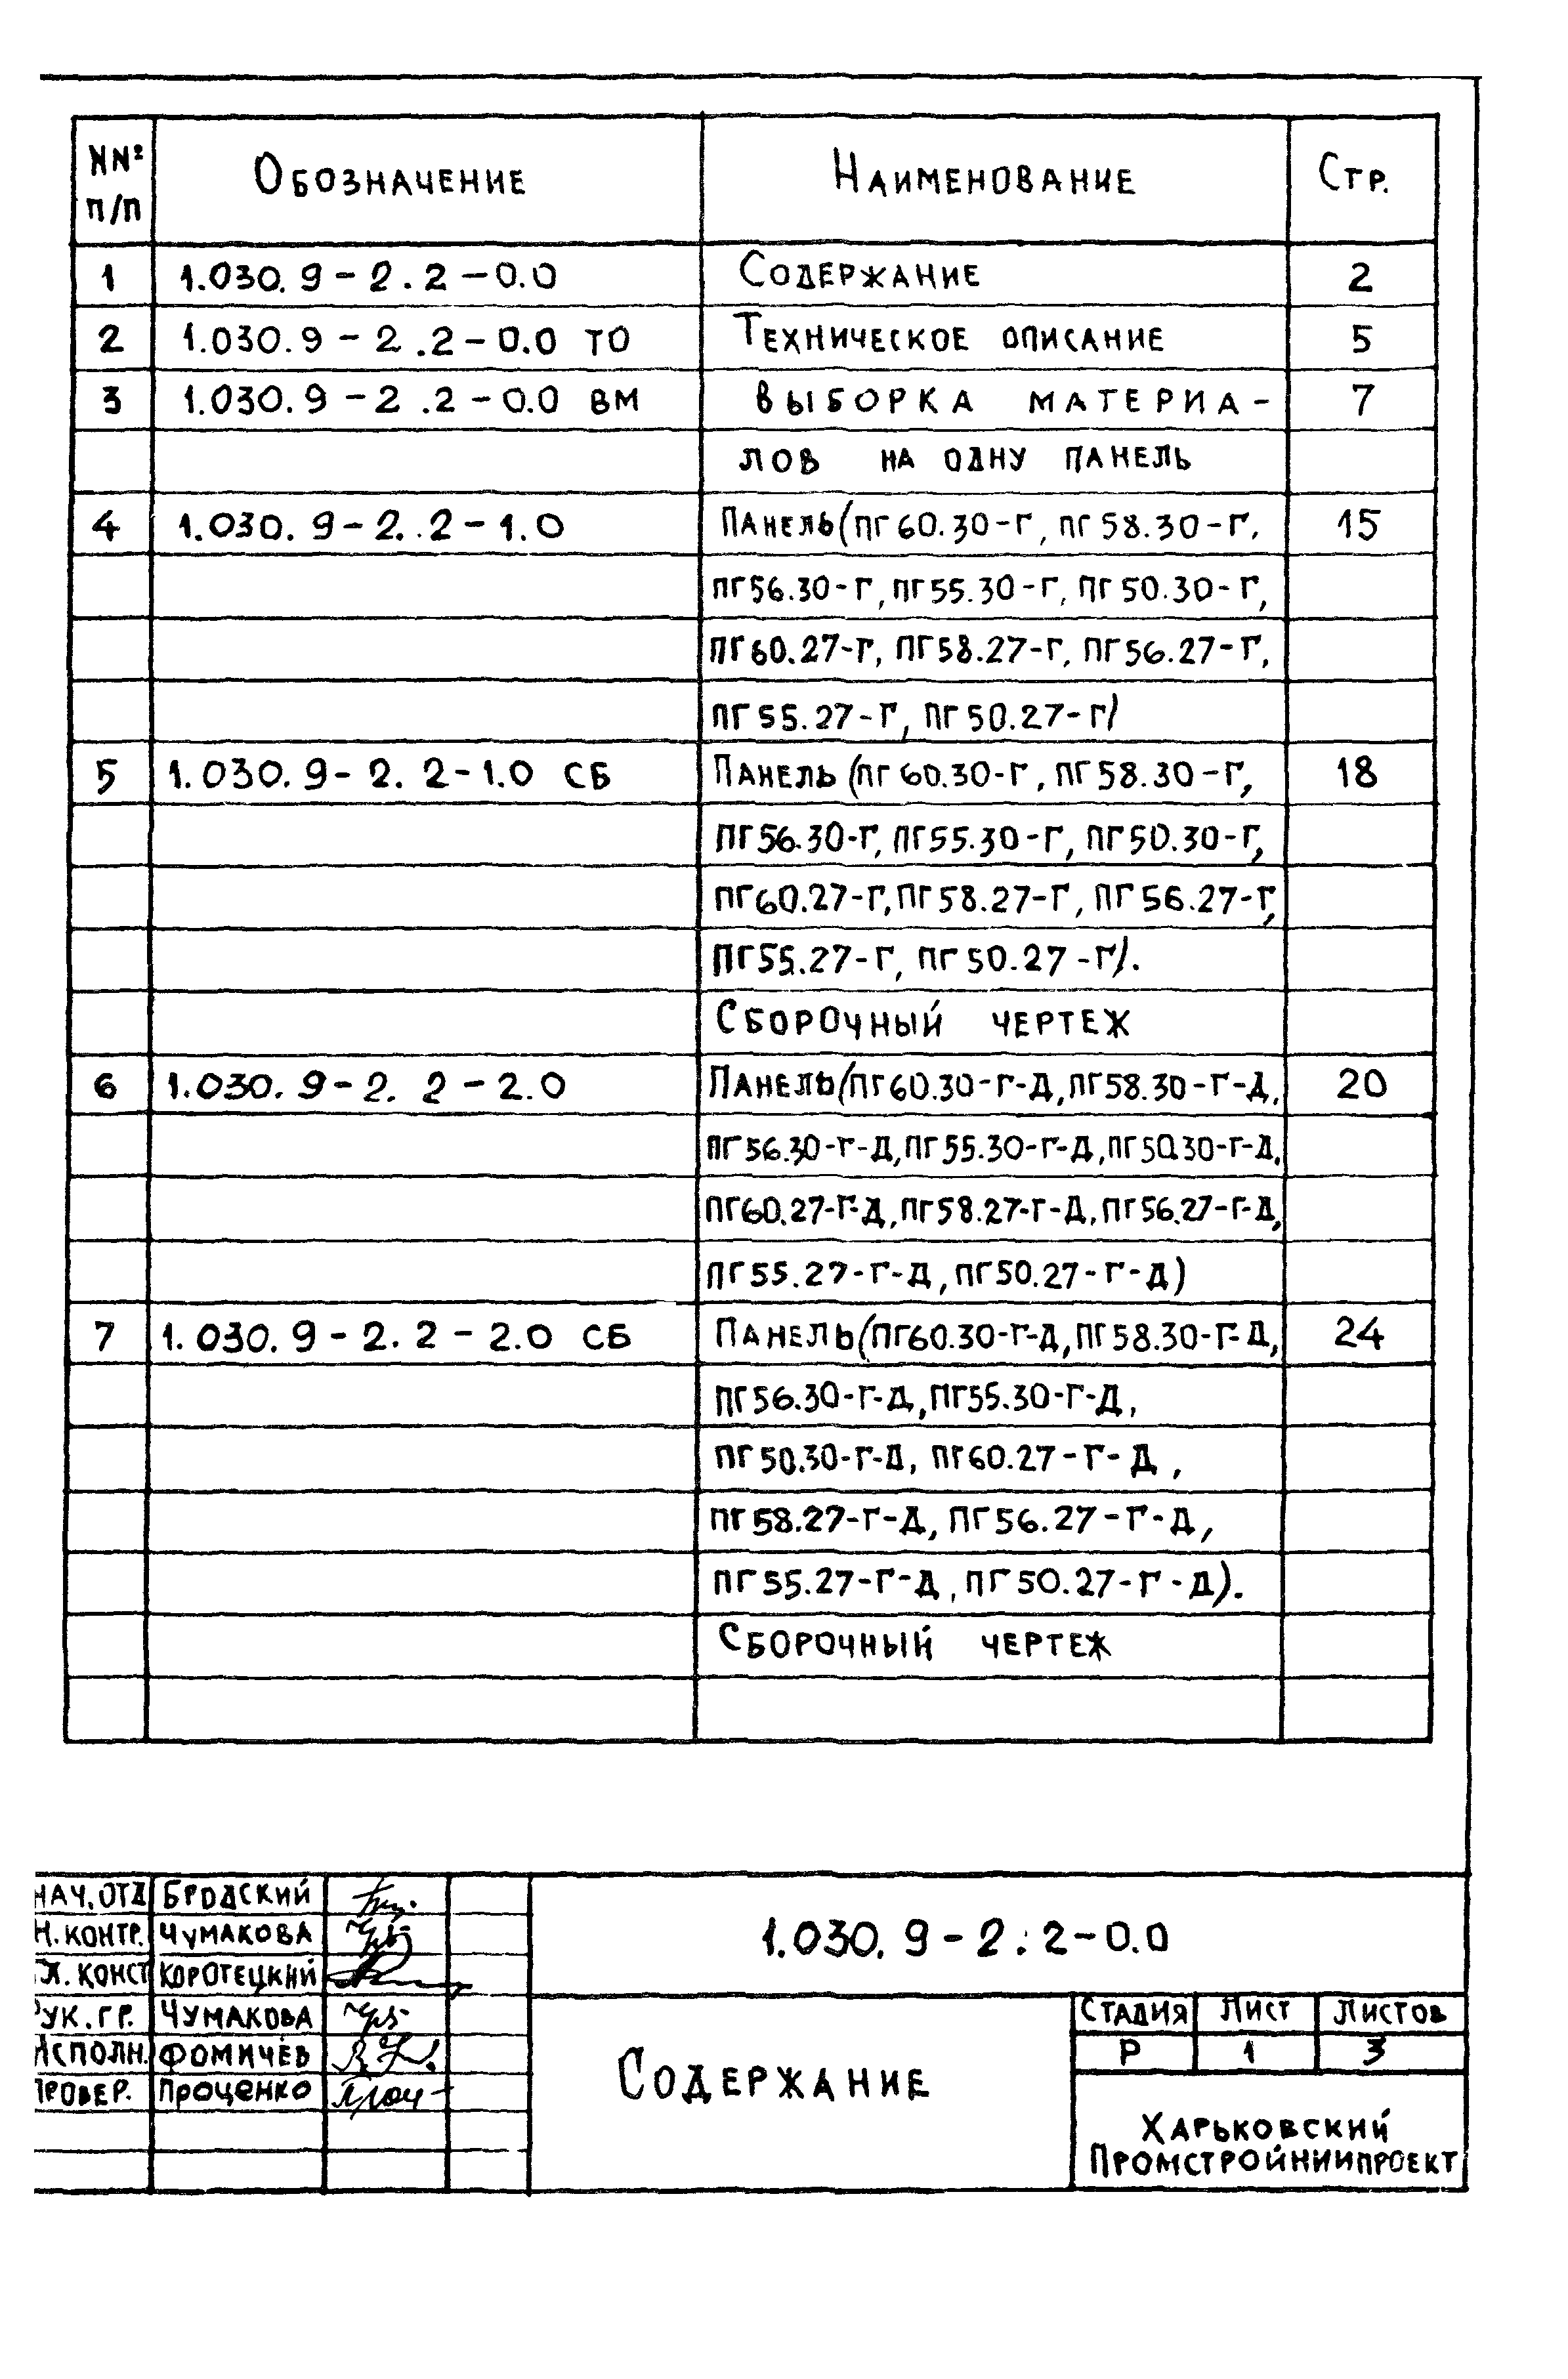 NNº п/п Обозначение Наименование Стр.
1 1.030.9-2.2-0.0 Содержание 2
2 1.030.9-2.2-0.0 ТО Техническое описание 5
3 1.030.9-2.2-0.0 ВМ Выборка материа- 7
лов на одну панель
4 1.030.9-2.2-1.0 Панель (ПГ60.30-Г, ПГ58.30-Г, 15
ПГ56.30-Г, ПГ55.30-Г, ПГ50.30-Г,
ПГ60.27-Г, ПГ58.27-Г, ПГ56.27-Г,
ПГ55.27-Г, ПГ50.27-Г)
5 1.030.9-2.2-1.0 СБ Панель (ПГ60.30-Г, ПГ58.30-Г, 18
ПГ56.30-Г, ПГ55.30-Г, ПГ50.30-Г,
ПГ60.27-Г, ПГ58.27-Г, ПГ56.27-Г,
ПГ55.27-Г, ПГ50.27-Г).
Сборочный чертеж
6 1.030.9-2.2-2.0 Панель (ПГ60.30-Г-Д, ПГ58.30-Г-Д, 20
ПГ56.30-Г-Д, ПГ55.30-Г-Д, ПГ50.30-Г-Д,
ПГ60.27-Г-Д, ПГ58.27-Г-Д, ПГ56.27-Г-Д,
ПГ55.27-Г-Д, ПГ50.27-Г-Д)
7 1.030.9-2.2-2.0 СБ Панель (ПГ60.30-Г-Д, ПГ58.30-Г-Д, 24
ПГ56.30-Г-Д, ПГ55.30-Г-Д,
ПГ50.30-Г-Д, ПГ60.27-Г-Д,
ПГ58.27-Г-Д, ПГ56.27-Г-Д,
ПГ55.27-Г-Д, ПГ50.27-Г-Д).
Сборочный чертеж
Нач. отд Бродский
Н. контр. Чумакова
Гл. конст Коротецкий
Рук. гр. Чумакова
Исполн. Фомичёв
Провер. Проценко
1.030.9-2.2-0.0
Содержание
Стадия Лист Листов
Р 1 3
Харьковский
Промстройниипроект